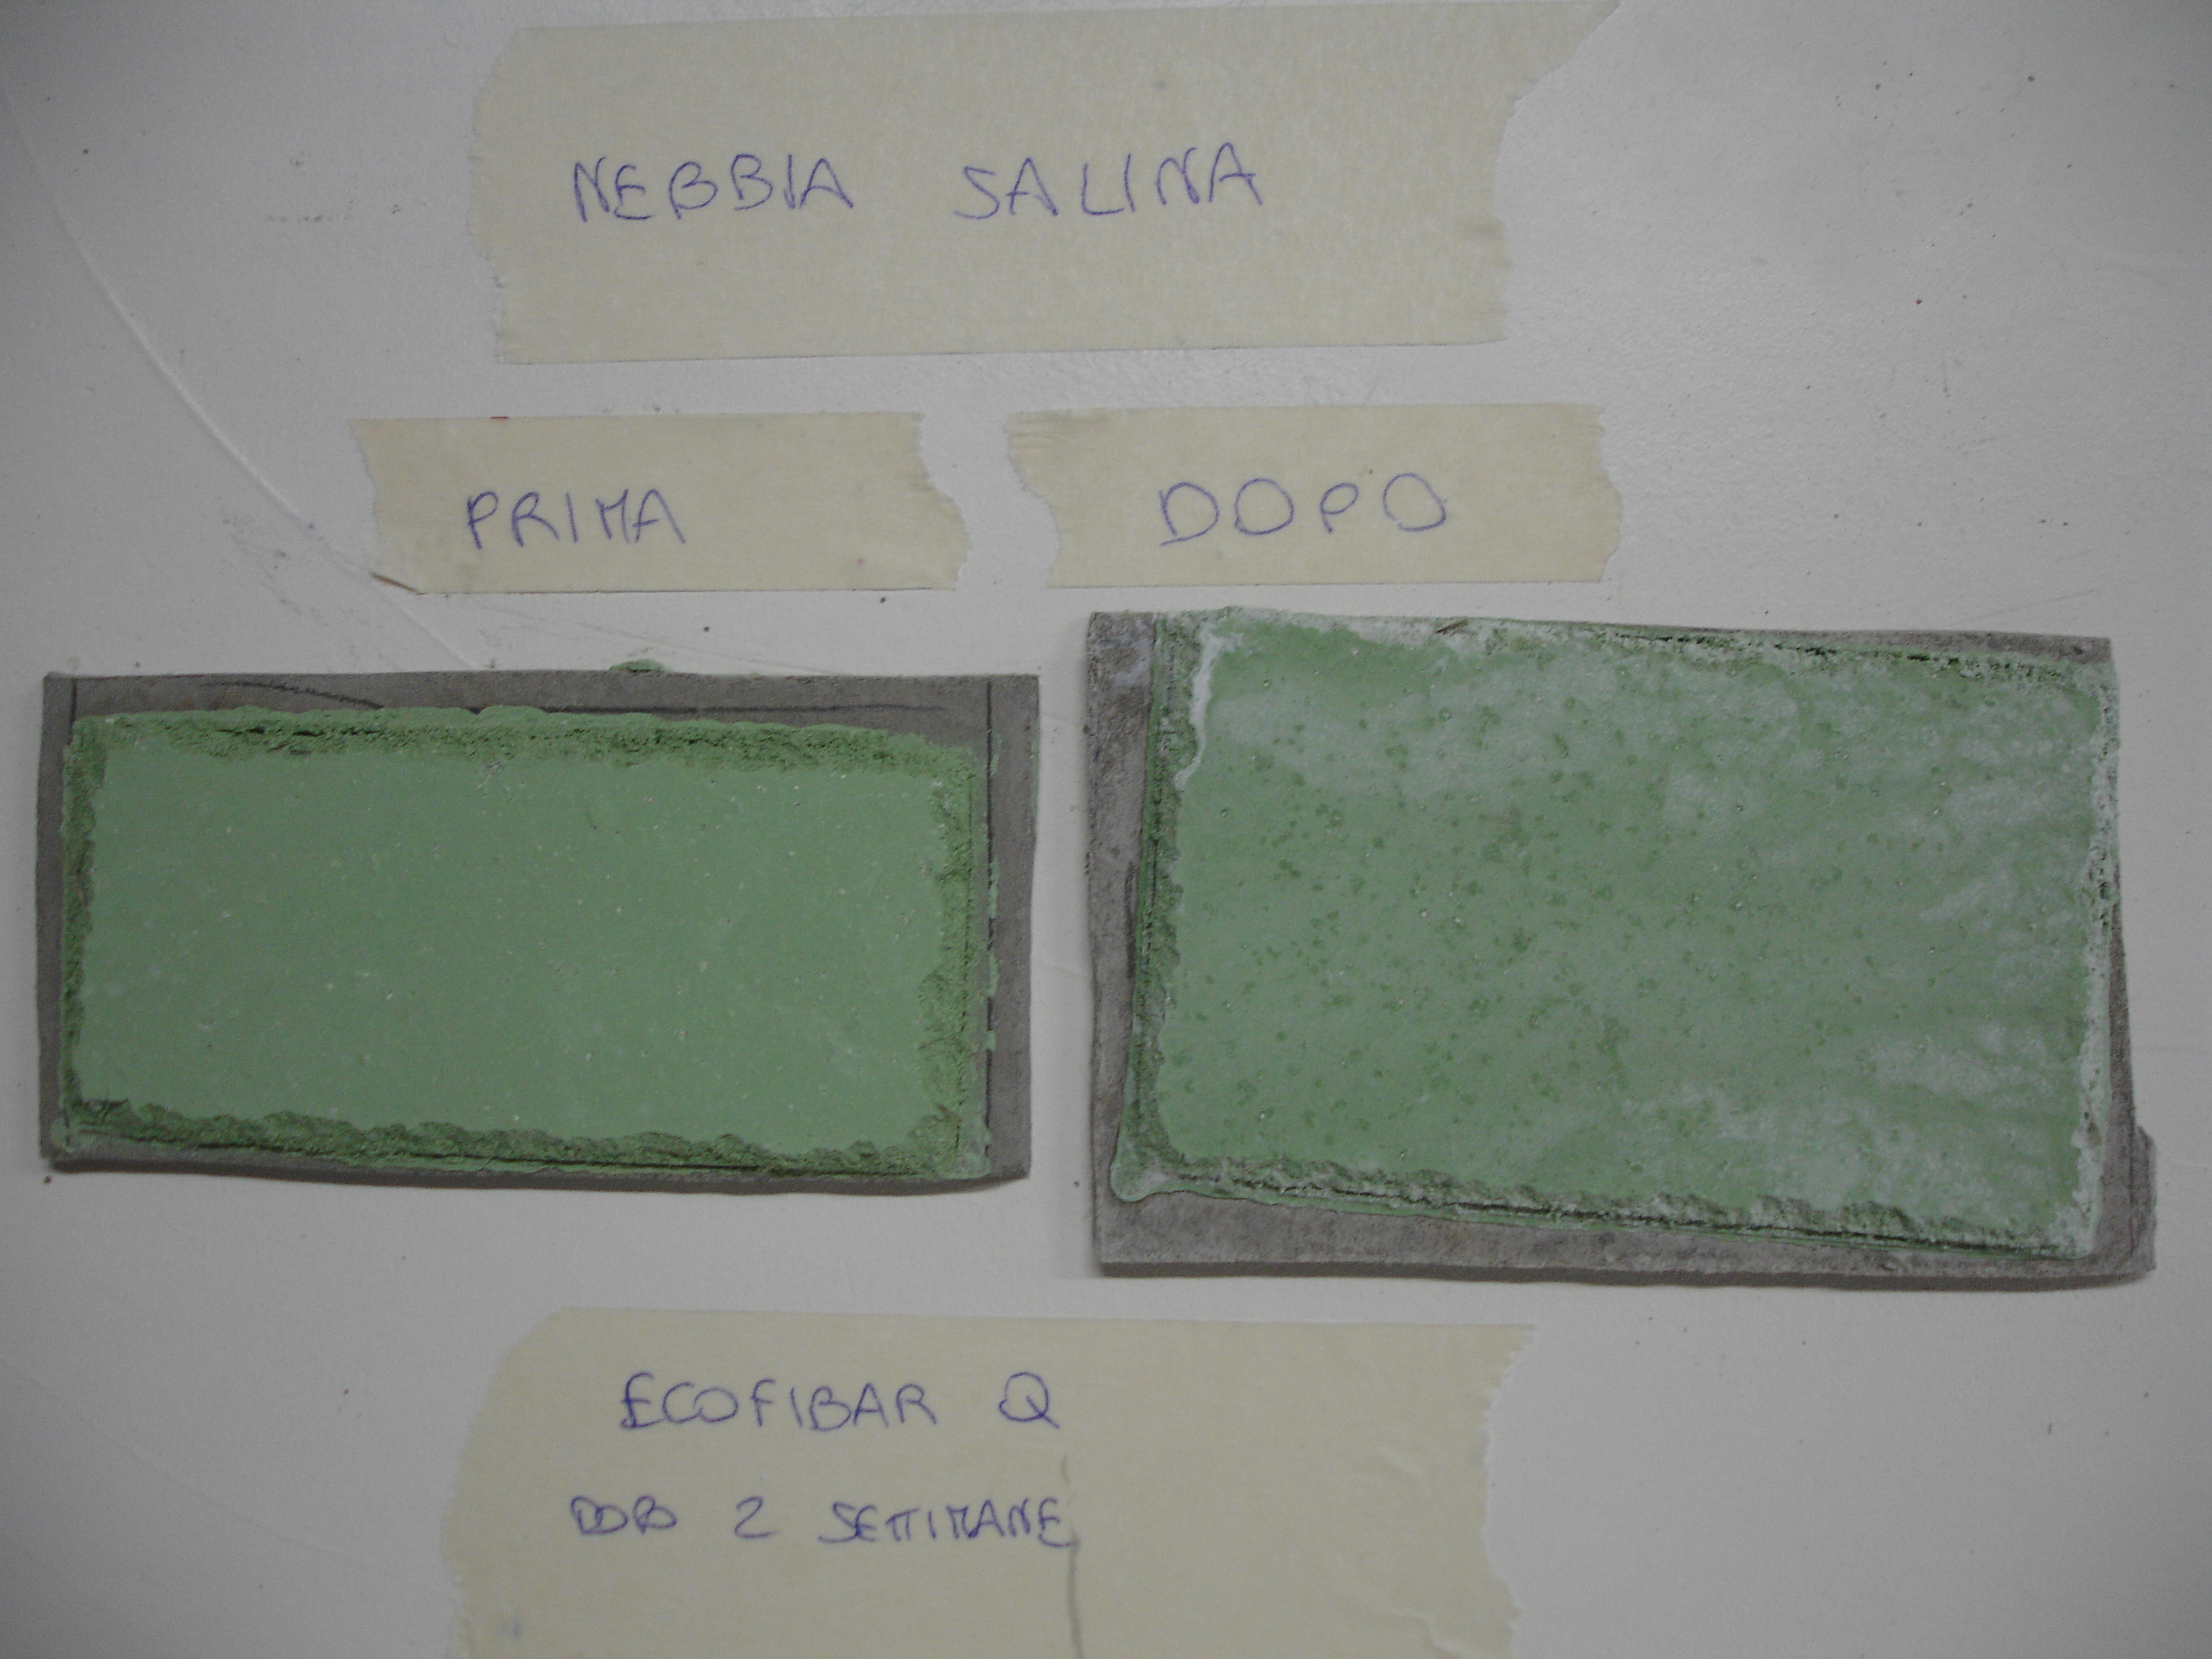 NEBBIA SALINA
PRIMA
DOPO
ECOFIBAR Q
DOPO 2 SETTIMANE